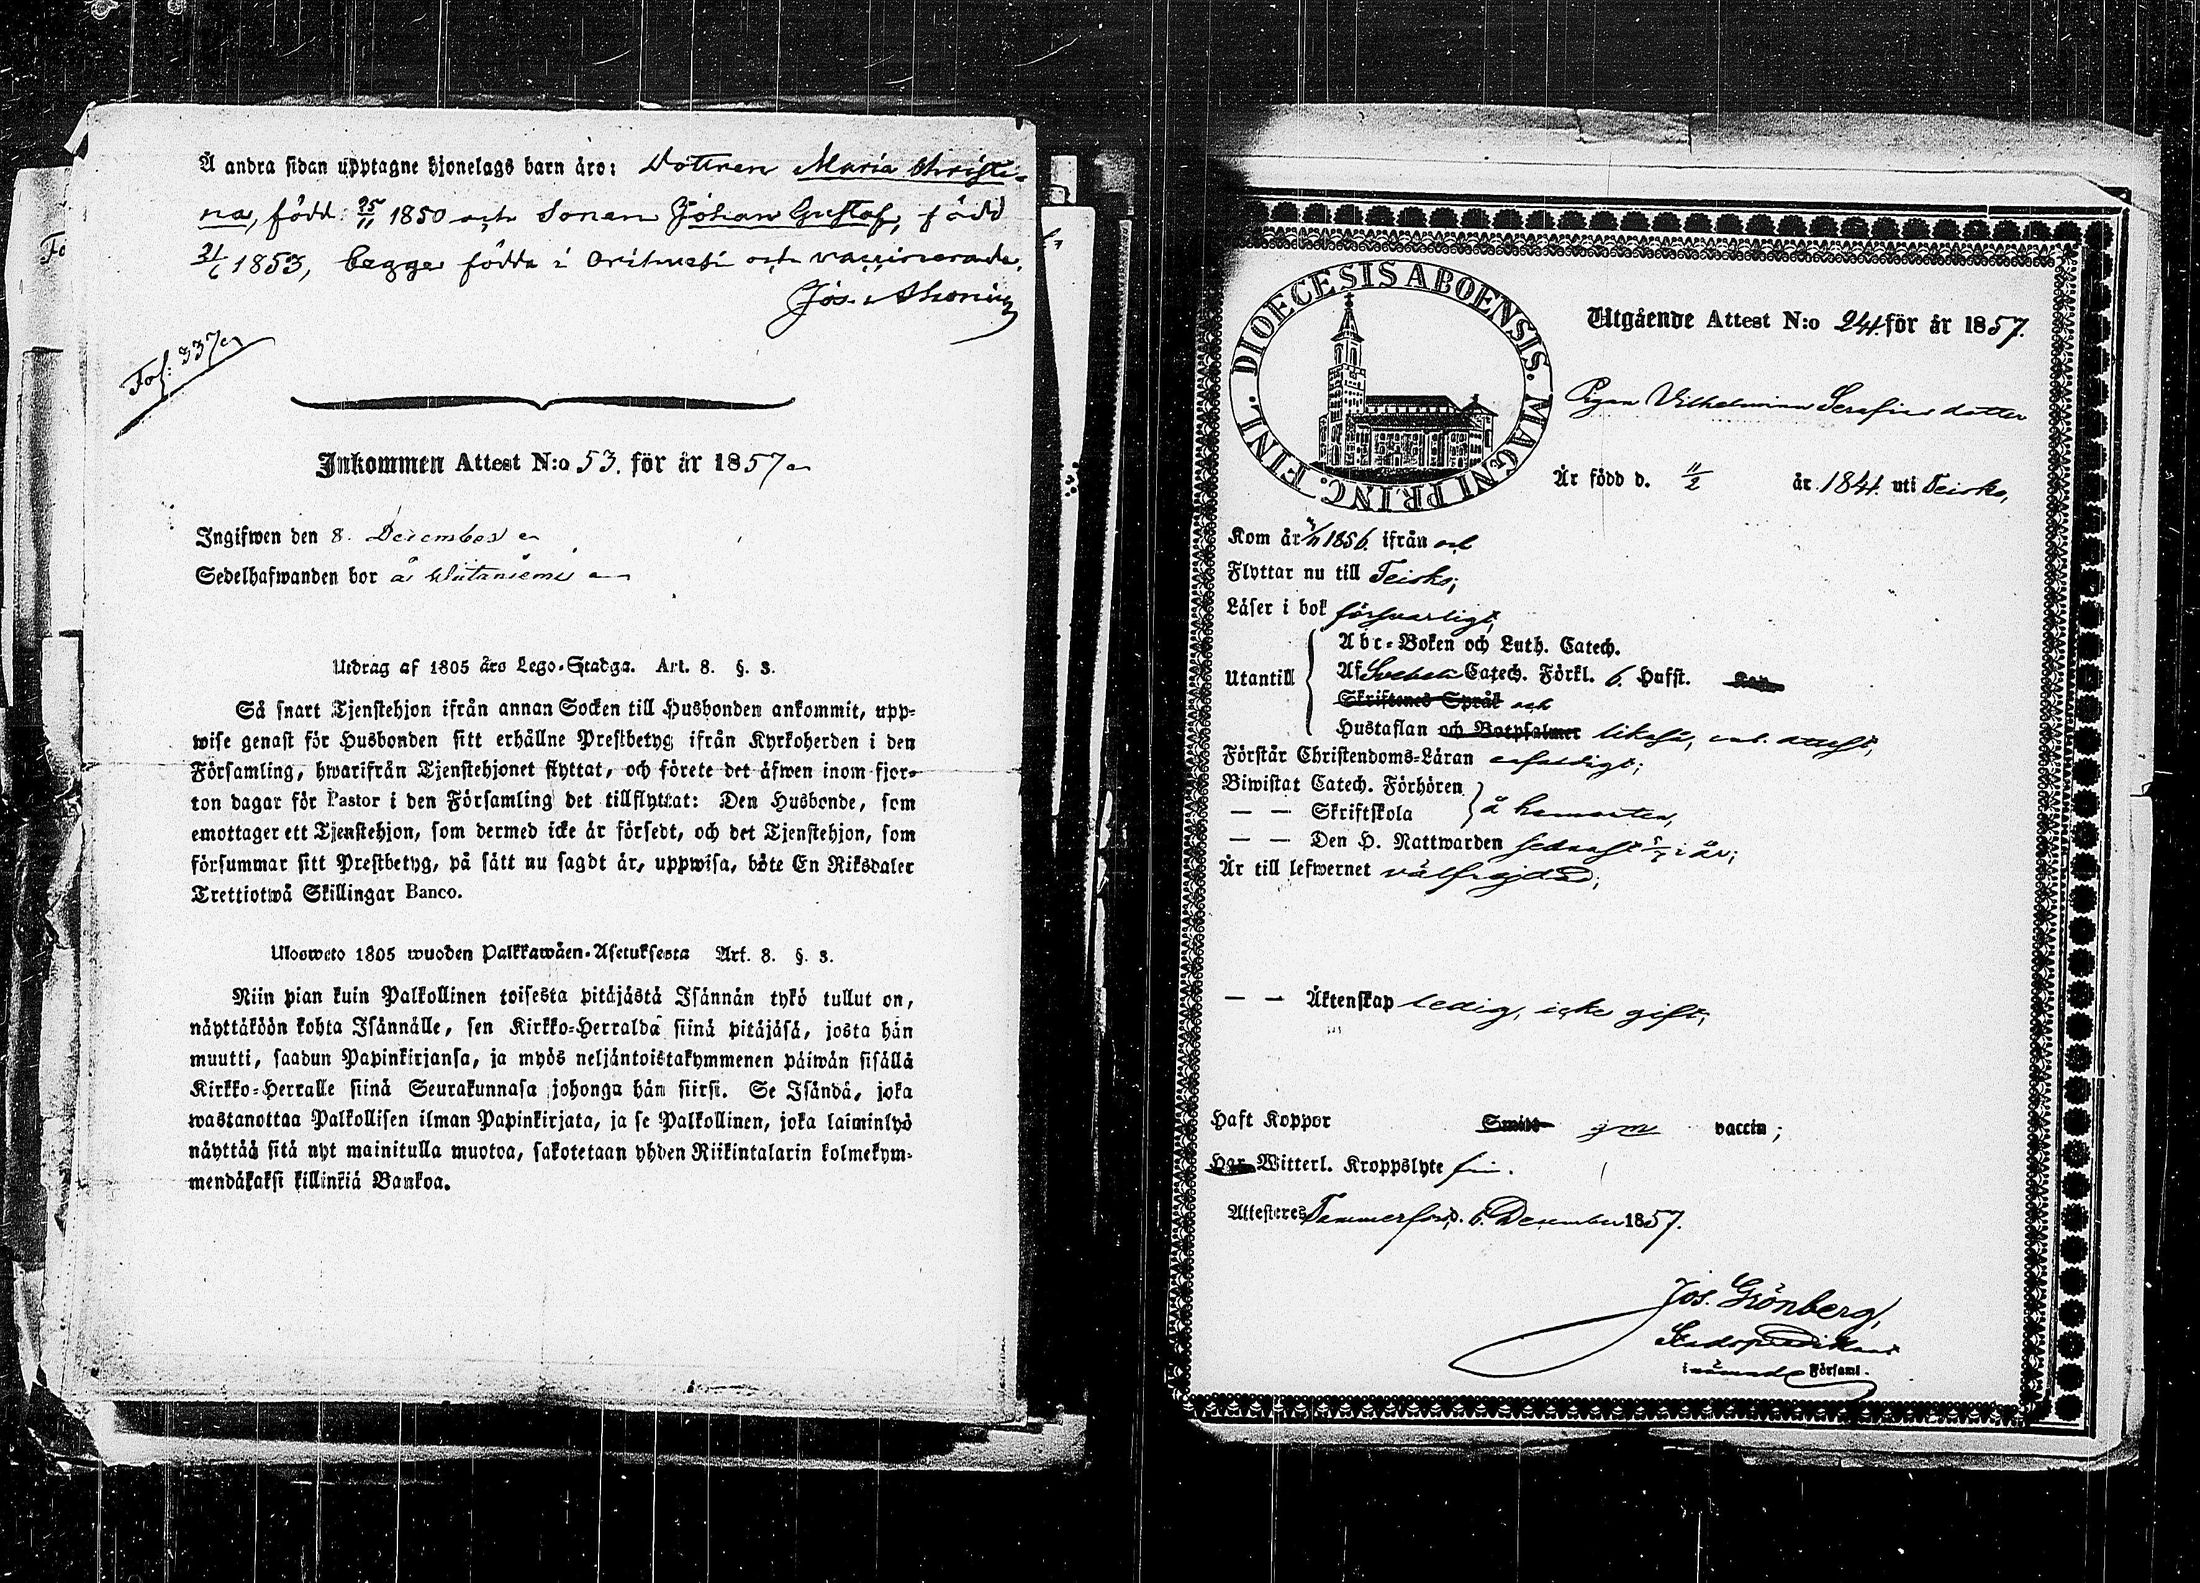 Å andra sidan upptagne hjonelags barn äro: Dottren Maria Christi=
na, född 25/11 1850 och Sonen Johan Gustaf, född
21/6 1853, begge födda i Orihvesi och vaccinerade.
Jos.
Fol: 337
Inkommen Attest N:o 53. för år 1857
Ingifwen den 8. December
Sedelhafwanden bor å
Utdrag af 1805 års Lego-Stadga. Art. 8. §. 3.
Så snart Tjenstehjon ifrån annan Socken till Husbonden ankommit, upp-
wise genast för Husbonden sitt erhållne Prestbetyg ifrån Kyrkoherden i den
Församling, hwarifrån Tjenstehjonet flyttat, och förete det äfwen inom fjor-
ton dagar för Pastor i den Församling det tillflyttat: Den Husbonde, som
emottager ett Tjenstehjon, som dermed icke är försedt, och det Tjenstehjon, som
försummar sitt Prestbetyg, på sätt nu sagdt är, uppwisa, böte En Riksdaler
Trettiotwå Skillingar Banco.
Ulosweto 1805 wuoden Palkkawäen-Asetuksesta Art. 8. §. 3.
Niin pian kuin Palkollinen toisesta pitäjästä Isännän tykö tullut on,
näyttäköön kohta Isännälle, sen Kirkko-Herralda siinä pitäjäsä, josta hän
muutti, saadun Papinkirjansa, ja myös neljäntoistakymmenen päiwän sisällä
Kirkko-Herralle siinä Seurakunnasa johonga hän siirsi. Se Isändä, joka
wastanottaa Palkollisen ilman Papinkirjata, ja se Palkollinen, joka laiminlyö
näyttää sitä nyt mainitulla muotoa, sakotetaan yhden Riikintalarin kolmekym-
mendäkaksi killinkiä Bankoa.
DIOECESIS ABOENSIS. MAGNI PRINC. FINL.
Utgående Attest N:o 241. för år 1857.
Pigan Vilhelmina Serafias dotter
Är född d. 11/2 år 1841. uti Teisko,
Kom år 1856. ifrån och
Flyttar nu till Teisko;
Läser i bok försvarligt,
Utantill
Abc-Boken och Luth. Catech.
Af Svebelii Catech. Förkl. 6. Hufst.
Skriftenes Språk och
Hustaflan och Botpsalmer likaså, enl. attest,
Förstår Christendoms-Läran enfaldigt;
Biwistat Catech. Förhören
— — Skriftskola å hemorten,
— — Den H. Nattwarden sednast i år;
Är till lefwernet välfrejdad;
— — Äktenskap ledig, icke gift;
Haft Koppor Smitt gm vaccin;
Har Witterl. Kroppslyte fri.
Attesteres Tammerfors, d. 6. December 1857.
Jos. Grönberg,
Stadspredikant
i nämnde Församl.